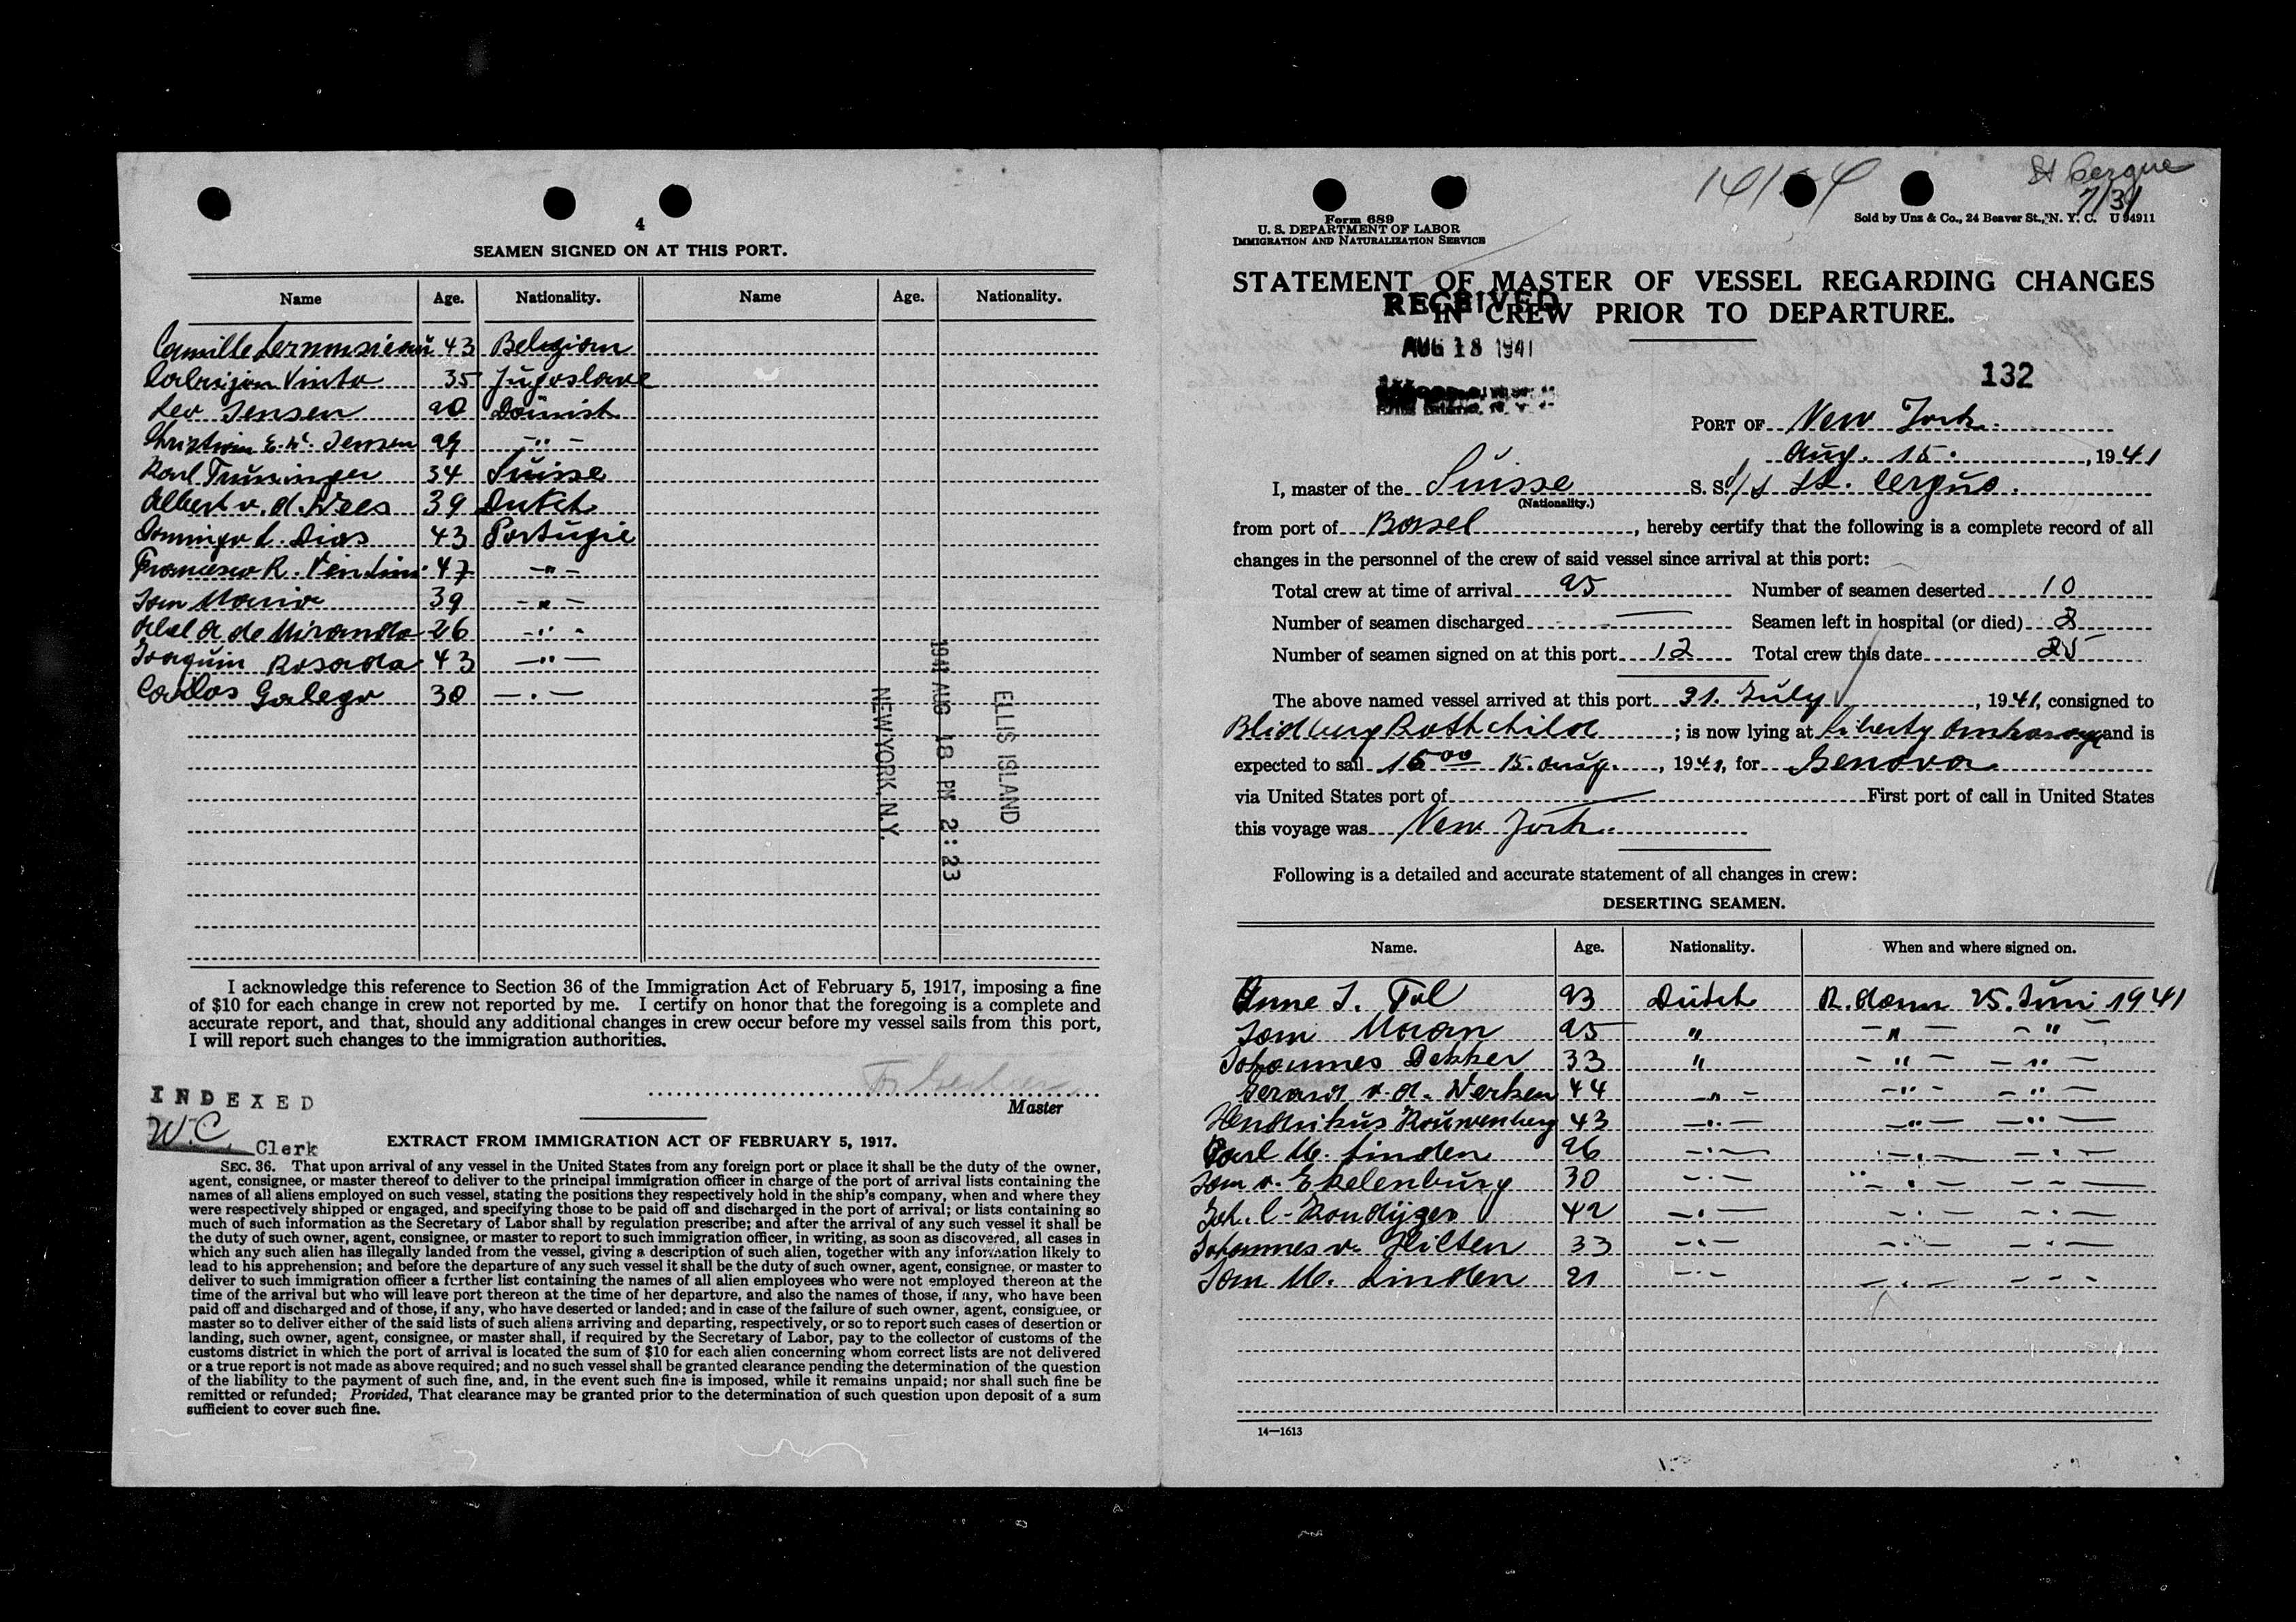 4
SEAMEN SIGNED ON AT THIS PORT.
Name Age. Nationality. Name Age. Nationality.
Camille 43 Belgian
Vinto 35 Jugoslave
Leo Jensen 20 Dänish
Christian E. Jensen 29 -"-
Karl Trüninger 34 Süisse
Albert v. d. Wees 39 Dutch
Domingo L. Dias 43 Portügie
Francesco R. 47 -"-
Jom Maria 39 -"-
A de Miranda 26 -"-
Joaquim Rosada 43 -"-
Carlos Galego 30 -"-
ELLIS ISLAND
1941 AUG 18 PM 2:23
NEW YORK, N.Y.
I acknowledge this reference to Section 36 of the Immigration Act of February 5, 1917, imposing a fine
of $10 for each change in crew not reported by me. I certify on honor that the foregoing is a complete and
accurate report, and that, should any additional changes in crew occur before my vessel sails from this port,
I will report such changes to the immigration authorities.
Master
INDEXED
W.C. Clerk
EXTRACT FROM IMMIGRATION ACT OF FEBRUARY 5, 1917.
SEC. 36. That upon arrival of any vessel in the United States from any foreign port or place it shall be the duty of the owner,
agent, consignee, or master thereof to deliver to the principal immigration officer in charge of the port of arrival lists containing the
names of all aliens employed on such vessel, stating the positions they respectively hold in the ship's company, when and where they
were respectively shipped or engaged, and specifying those to be paid off and discharged in the port of arrival; or lists containing so
much of such information as the Secretary of Labor shall by regulation prescribe; and after the arrival of any such vessel it shall be
the duty of such owner, agent, consignee, or master to report to such immigration officer, in writing, as soon as discovered, all cases in
which any such alien has illegally landed from the vessel, giving a description of such alien, together with any information likely to
lead to his apprehension; and before the departure of any such vessel it shall be the duty of such owner, agent, consignee, or master to
deliver to such immigration officer a further list containing the names of all alien employees who were not employed thereon at the
time of the arrival but who will leave port thereon at the time of her departure, and also the names of those, if any, who have been
paid off and discharged and of those, if any, who have deserted or landed; and in case of the failure of such owner, agent, consignee, or
master so to deliver either of the said lists of such aliens arriving and departing, respectively, or so to report such cases of desertion or
landing, such owner, agent, consignee, or master shall, if required by the Secretary of Labor, pay to the collector of customs of the
customs district in which the port of arrival is located the sum of $10 for each alien concerning whom correct lists are not delivered
or a true report is not made as above required; and no such vessel shall be granted clearance pending the determination of the question
of the liability to the payment of such fine, and, in the event such fine is imposed, while it remains unpaid; nor shall such fine be
remitted or refunded; Provided, That clearance may be granted prior to the determination of such question upon deposit of a sum
sufficient to cover such fine.
St Cergue
7/31
Form 689
U. S. DEPARTMENT OF LABOR
IMMIGRATION AND NATURALIZATION SERVICE
Sold by Unz & Co., 24 Beaver St., N. Y. C. U 94911
STATEMENT OF MASTER OF VESSEL REGARDING CHANGES
IN CREW PRIOR TO DEPARTURE.
RECEIVED
AUG 18 1941
132
PORT OF New York
Aug. 15., 1941
I, master of the Süisse S. S. St. Cergüe.
(Nationality.)
from port of Basel, hereby certify that the following is a complete record of all
changes in the personnel of the crew of said vessel since arrival at this port:
Total crew at time of arrival 25 Number of seamen deserted 10
Number of seamen discharged — Seamen left in hospital (or died) 2
Number of seamen signed on at this port 12 Total crew this date 25
The above named vessel arrived at this port 31. Jüly, 1941, consigned to
Blidberg Rothchild; is now lying at Liberty and is
expected to sail 16 00 15. Aüg., 1941, for Genova
via United States port of — First port of call in United States
this voyage was New York
Following is a detailed and accurate statement of all changes in crew:
DESERTING SEAMEN.
Name. Age. Nationality. When and where signed on.
Anne J. Tol 23 Dütch R. dam 25. Jüni 1941
Jom Moran 25 " -"- -"-
Johannes Dekker 33 " -"- -"-
Gerard v. d. Werken 44 -"- -"- -"-
Hendrikus Roüwenberg 43 -"- -"- -"-
Carl M. Linden 26 -"- -"- -"-
Jom v. Ekelenbürg 30 -"- -"- -"-
Joh. C. 42 -"- -"- -"-
Johannes v. Hilten 33 -"- -"- -"-
Jom M. Linden 21 -"- -"- -"-
14—1613